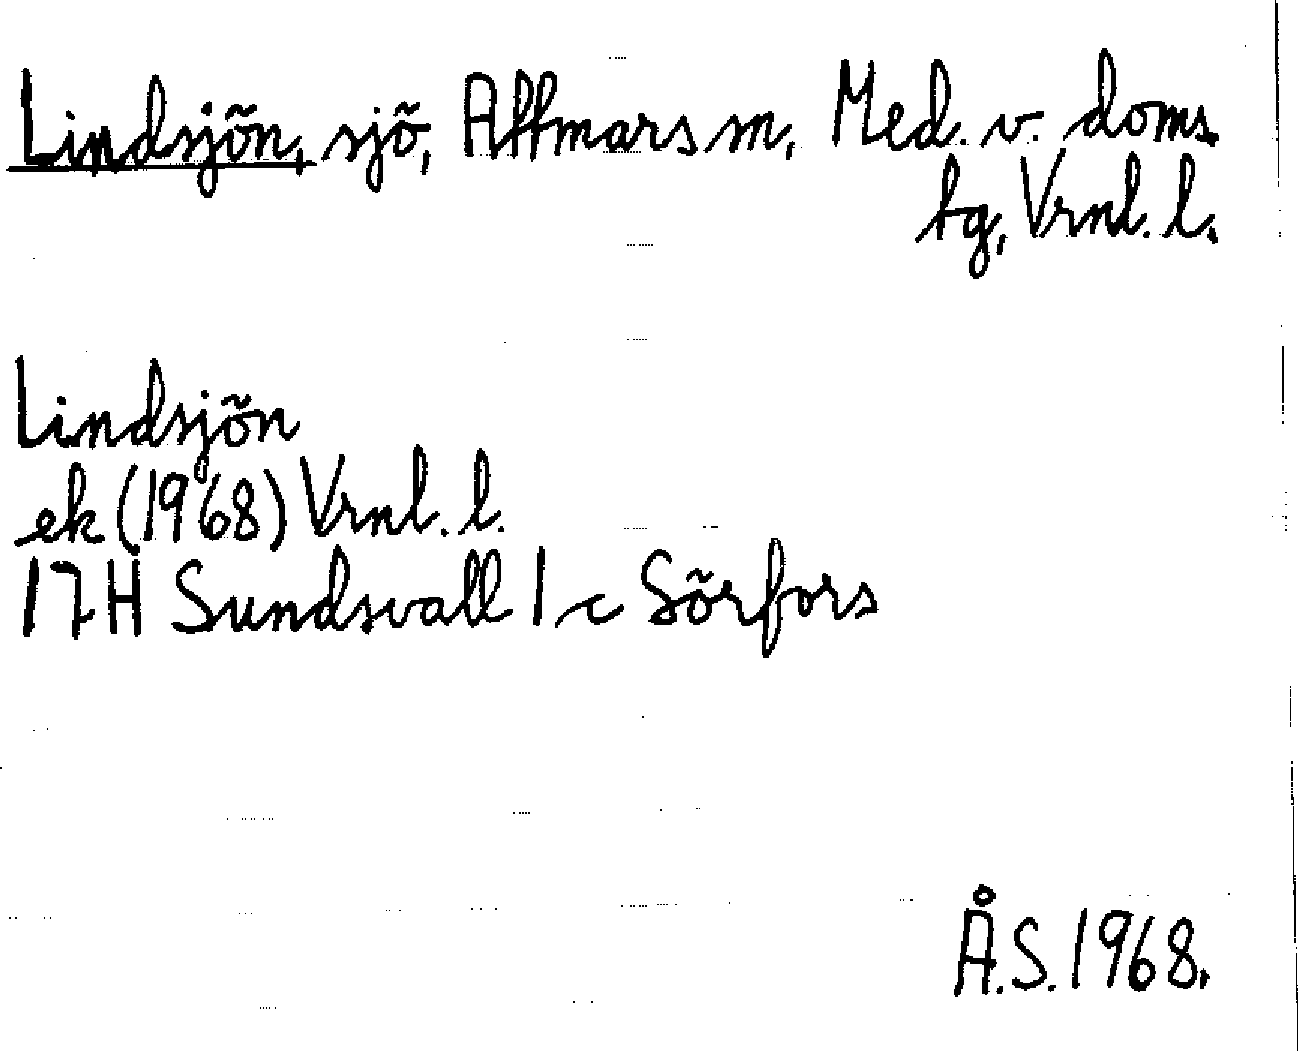 Lindsjön, sjö, Attmars sn, Med. v. doms.
tg, Vrnl. l.
Lindsjön
ek (1968) Vrnl. l.
17H Sundsvall 1 c Sörfors
Å.S. 1968.